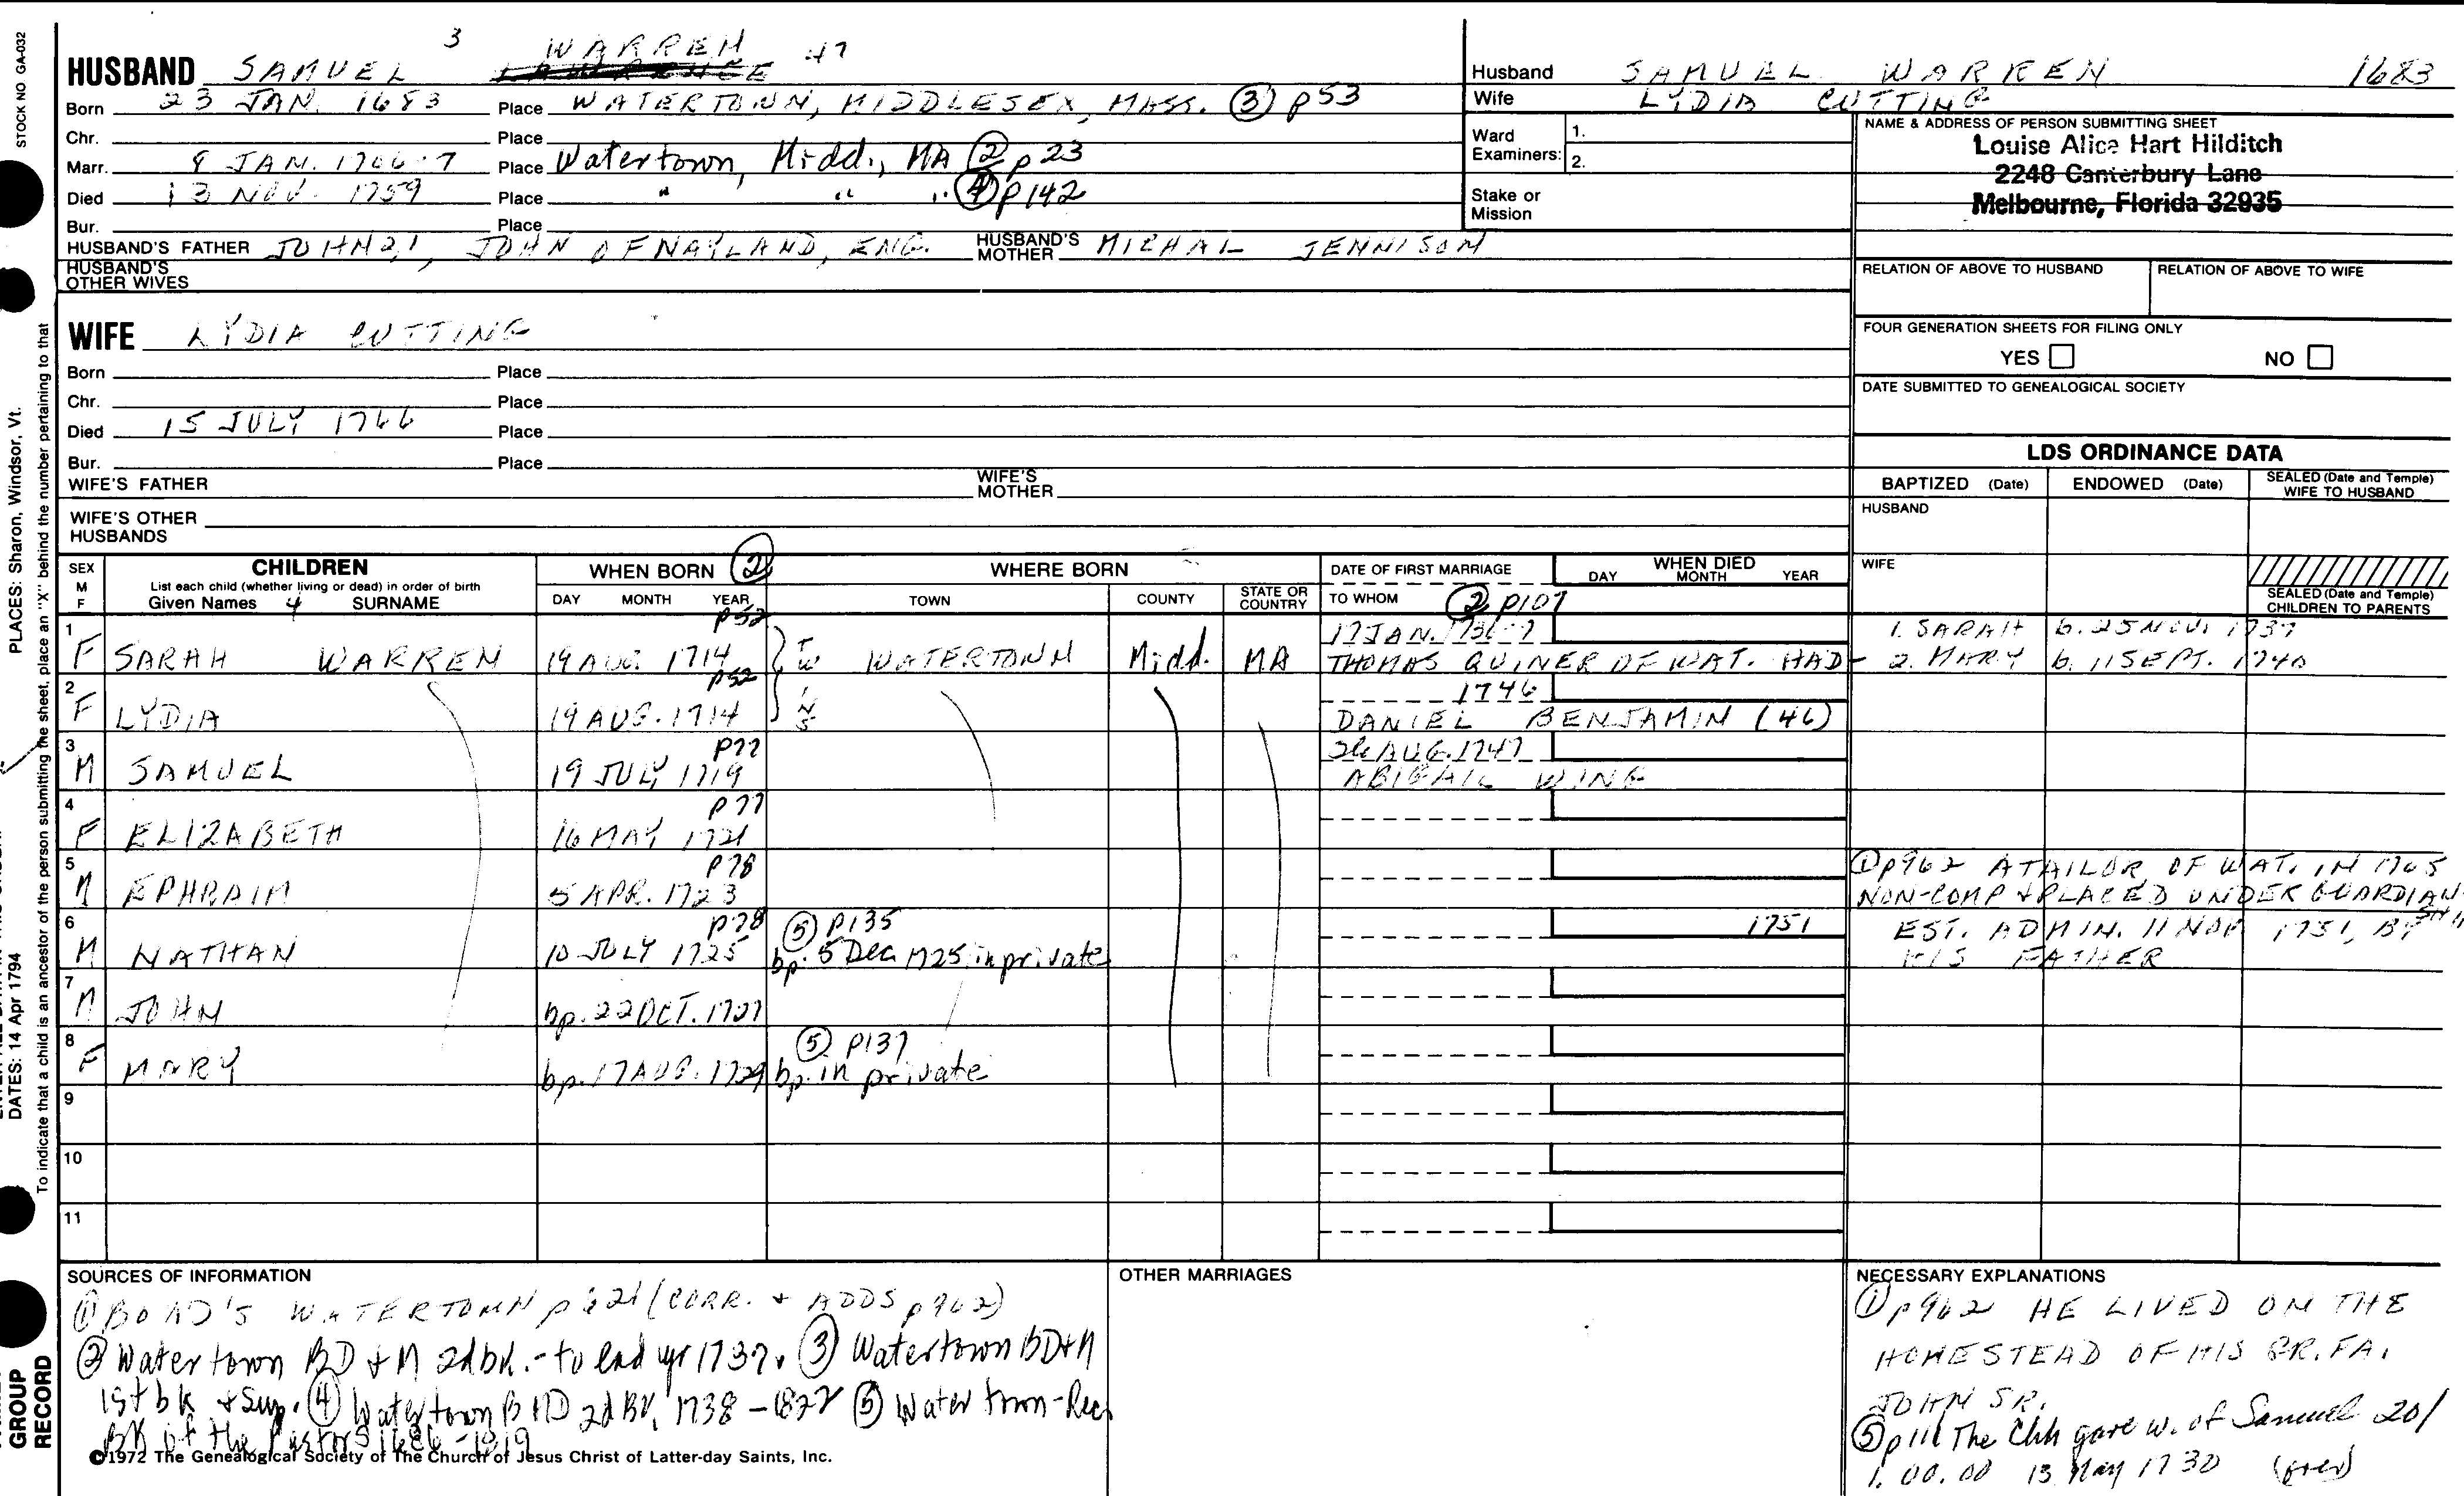 STOCK NO. GA-032
3 WARREN 47
HUSBAND SAMUEL LAWRENCE
Born 23 JAN. 1683 Place WATERTOWN, MIDDLESEX, MASS. (3) p53
Chr. Place
Marr. 9 JAN. 1706-7 Place Watertown, Midd., MA (2) p23
Died 13 NOV. 1759 Place " " " (4) p142
Bur. Place
HUSBAND'S FATHER JOHN2,1, JOHN OF NAYLAND, ENG. HUSBAND'S MOTHER MICHAL JENNISON
HUSBAND'S OTHER WIVES
Husband SAMUEL WARREN 1683
Wife LYDIA CUTTING
Ward Examiners: 1.
2.
Stake or Mission
NAME & ADDRESS OF PERSON SUBMITTING SHEET
Louise Alice Hart Hilditch
2248 Canterbury Lane
Melbourne, Florida 32935
RELATION OF ABOVE TO HUSBAND RELATION OF ABOVE TO WIFE
FOUR GENERATION SHEETS FOR FILING ONLY
YES NO
DATE SUBMITTED TO GENEALOGICAL SOCIETY
WIFE LYDIA CUTTING
Born Place
Chr. Place
Died 15 JULY 1766 Place
Bur. Place
WIFE'S FATHER WIFE'S MOTHER
WIFE'S OTHER HUSBANDS
LDS ORDINANCE DATA
BAPTIZED (Date) ENDOWED (Date) SEALED (Date and Temple) WIFE TO HUSBAND
HUSBAND
WIFE
SEALED (Date and Temple) CHILDREN TO PARENTS
SEX M F
CHILDREN
List each child (whether living or dead) in order of birth
Given Names 4 SURNAME
WHEN BORN (2)
DAY MONTH YEAR
WHERE BORN
TOWN COUNTY STATE OR COUNTRY
DATE OF FIRST MARRIAGE
TO WHOM (2) p107
WHEN DIED
DAY MONTH YEAR
1 F SARAH WARREN p52 19 AUG. 1714 TWINS WATERTOWN Midd. MA 17 JAN. 1736-7 THOMAS QUINER OF WAT. HAD- 1. SARAH b. 25 NOV. 1737
2. MARY b. 11 SEPT. 1740
2 F LYDIA p52 19 AUG. 1714 1746 DANIEL BENJAMIN (46)
3 M SAMUEL p77 19 JULY 1719 26 AUG. 1747 ABIGAIL WING
4 F ELIZABETH p77 16 MAY 1721
5 M EPHRAIM p78 5 APR. 1723 (1) p962 A TAILOR OF WAT. IN 1765
NON-COMP + PLACED UNDER GUARDIAN
6 M NATHAN p78 10 JULY 1725 (5) p135 bp. 5 Dec 1725 in private 1751 EST. ADMIN. 11 NOV 1751, BY
HIS FATHER
7 M JOHN bp. 22 OCT. 1727
8 F MARY bp. 17 AUG. 1729 (5) p137 bp. in private
9
10
11
SOURCES OF INFORMATION
(1) BOND'S WATERTOWN p 621 (CORR. + ADDS p962)
(2) Watertown BD + M 2d bk. - to end yr 1737. (3) Watertown BD+M
1st bk + Sup. (4) Watertown BMD 2d Bk, 1738-1822 (5) Watertown-Rec
Bk of the Pastors 1686-1819
©1972 The Genealogical Society of The Church of Jesus Christ of Latter-day Saints, Inc.
OTHER MARRIAGES
NECESSARY EXPLANATIONS
(1) p962 HE LIVED ON THE
HOMESTEAD OF HIS GR. FA.
JOHN SR.
(5) p111 The Chh gave w. of Samuel 20/
1.00.00 13 May 1730
PLACES: Sharon, Windsor, Vt.
DATES: 14 Apr 1794
To indicate that a child is an ancestor of the person submitting the sheet, place an "X" behind the number pertaining to that
GROUP RECORD